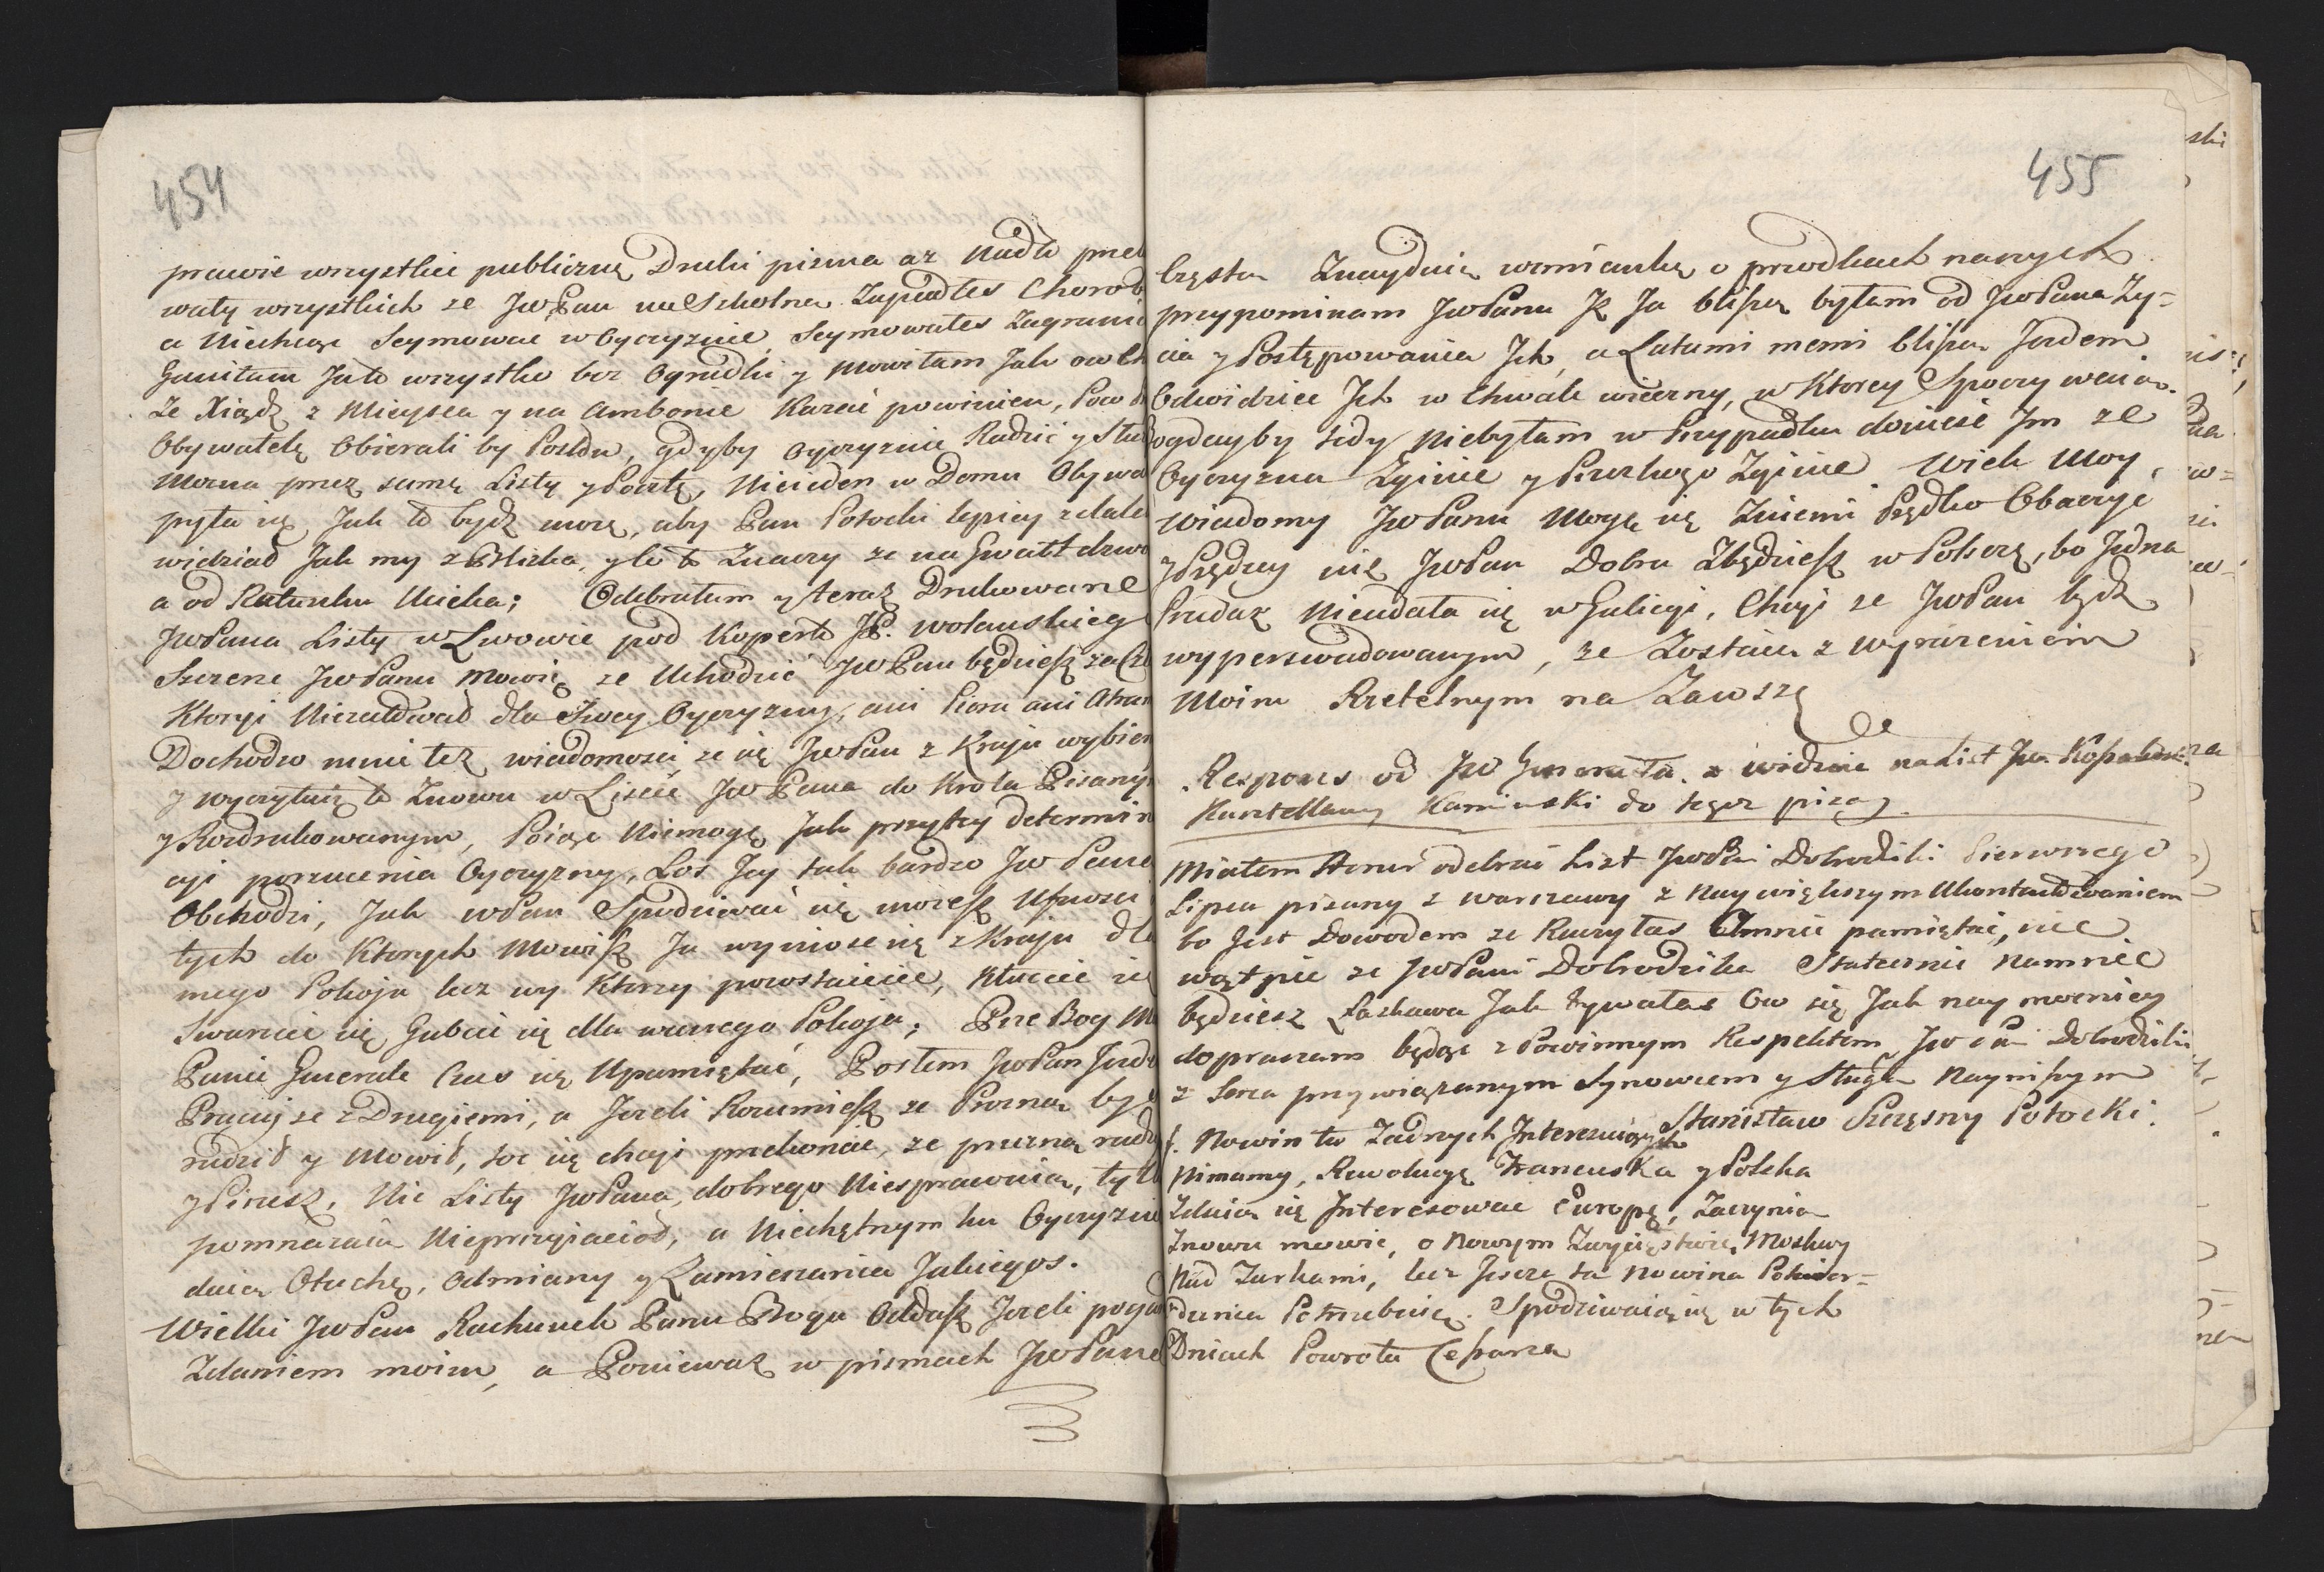 454
prawie wszystkie publiczne Druki pisma az Nadto prze
waty wszystkich ze JwPan na Szkolną Zapadłes Chorob
a Niechcąc Seymowac w Oyczyznie Seymowałes Zagrani
Ganiłam Jato wszystko bez Ogrudki y Mowiłam Jak
Ze Xiądz z Mieysca y na Ambonie Kazać powinien, Pow
Obywatelę Obierali by Posłów, gdyby Oyczyznie Radzić y Słu
Mozna przez samę Listy y Pocztę, Nieieden w Domu Obywa
pyta się Jak to bydz może, aby Pan Potocki lepiey zdale
widział Jak my z Bliska, y Co to Znaczy ze na Gwałt dzwo
a od Ratunku Ucieka; Odebrałam y teraz Drukowane
JwPana Listy w Lwowie pod Kopertą JP. Wolanskieg
Szczerze JwPanu Mowię ze Uchodzić JwPan będziesz za Cz
Ktoryi Nieżałował dla Swey Oyczyzny, ani Piora ani Atram
Dochodzo mnie też wiadomosci ze się JwPan z Kraju wybier
y wyczytuię to Znowu w Liscie JwPana do Krola Pisany
y Rozdrukowanym, Poiąc Niemogę Jak przy tey determin
cyi porzucenia Oyczyzny, Los Jey tak bardzo Jw Pana
Obchodzi, Jak wPan Spodziewać się możesz Ufnosci
tych do Ktorych Mowisz Ja wyniose się z Kraju dla
mego Pokoju lecz wy Ktorzy pozostaiecie, Kłuccie się
Swarcie się Gubcie się dla waszego Pokoju; Prze Bog M
Panie Generale Czas się Upamiętać, Posłem JwPan Jed
Pracuj ze z Drugiemi, a Jezeli Rozumiesz ze Prozna by
radził y Mowił, toć się chcyi przekonac, ze prozną radz
y Piszesz, Nic Listy JwPana, dobrego Niesprawuią, tylk
pomnazaia Nieprzyiacioł, a Niechętnym ku Oyczyzni
daią Otuchę, Odmiany y Zamieszania Jakiegos.
Wielki JwPan Rachunek Panu Bogu Oddasz Jezeli pogar
Zdaniem moim, a Poniewaz w pismach JwPana
455
Częstą Znayduię wzmiankę o przodkach naszych
przypominam JwPanu Jz Ja bliszą byłam od JwPana Zy=
cia y Postępowania Jch, a Latami memi bliszą Jestem
Odwidziec Jch w Chwale wieczny, w Ktorey Spoczywaią
ogdayby tedy Niebyłam w Przypadku doniesc Jm ze
Oyczyzna Zginie y Przez kogo Zginie. wiek Moy,
wiadomy JwPanu Mogę się Zniemi Prędko Obaczyć
y Prędzey nię JwPan Dobra Zbędziesz w Polszczę, bo Jedna
Przedaz Nieudała się w Galicyi, Chcyi ze JwPan bydz
wyperswadowanym, ze Zostaię z wyrażeniem
Moim Rzetelnym na Zawszę
Respons od Jw Generała na List Jw. Kossakow
Kasztellany Kaminski do tegoz pisany
Miałem Honor odebrać List JwPni Dobrodziki Pierwszego
Lipca pisany z Warszawy z Naywiększym Ukontentowaniem
bo Jest Dowodem ze Raczyłas Omnie pamiętać, nie
wątpie ze JwPani Dobrodzika Statecznie Namnie
będziesz Łaskawa Jak bywałas Oco się Jak nay mocniey
dopraszam będąc z Powinnym Respektem Jw Pa Dobrodziki
z Serca przywiązanym Synowcem y Sługą Nayniszym
Stanisław Szczęsny Potocki.
f. Nowin tu Zadnych Jnteresuiących
Nimamy, Rewolucyę Francuska y Polska
Zdaią się Jnteresowac Europę, Zaczynią
Znowu mowic, o Nowym Zwycięstwie, Moskwy
Nad Turkami, lecz Jeszcze ta Nowina Potwier=
dzenia Potrzebuię. Spodziewaią się w tych
Dniach Powrotu Cesarza